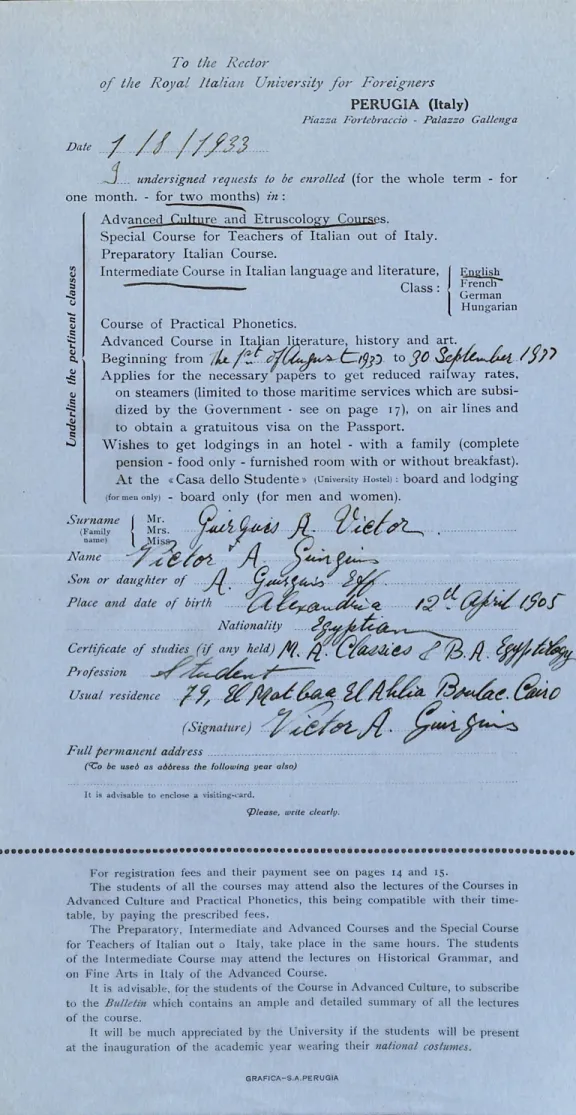 To the Rector
of the Royal Italian University for Foreigners
PERUGIA (Italy)
Piazza Fortebraccio - Palazzo Gallenga
Date 1/8/1933
I undersigned requests to be enrolled (for the whole term - for
one month. - for two months) in :
Underline the pertinent clauses
Advanced Culture and Etruscology Courses.
Special Course for Teachers of Italian out of Italy.
Preparatory Italian Course.
Intermediate Course in Italian language and literature,
Class :
English
French
German
Hungarian
Course of Practical Phonetics.
Advanced Course in Italian literature, history and art.
Beginning from the 1st of August 1933 to 30 September 1933
Applies for the necessary papers to get reduced railway rates,
on steamers (limited to those maritime services which are subsi-
dized by the Government - see on page 17), on air lines and
to obtain a gratuitous visa on the Passport.
Wishes to get lodgings in an hotel - with a family (complete
pension - food only - furnished room with or without breakfast).
At the « Casa dello Studente » (University Hostel) : board and lodging
(for men only) - board only (for men and women).
Surname (Family name) Mr. Mrs. Miss Guirguis A. Victor
Name Victor A. Guirguis
Son or daughter of A. Guirguis Eff
Place and date of birth Alexandria 12th April 1905
Nationality Egyptian
Certificate of studies (if any held) M. A. Classics & B. A. Egyptology
Profession Student
Usual residence 79, El Matbaa El Ahlia Boulac. Cairo
(Signature) Victor A. Guirguis
Full permanent address
(To be used as address the following year also)
It is advisable to enclose a visiting-card.
Please, write clearly.
For registration fees and their payment see on pages 14 and 15.
The students of all the courses may attend also the lectures of the Courses in
Advanced Culture and Practical Phonetics, this being compatible with their time-
table, by paying the prescribed fees.
The Preparatory, Intermediate and Advanced Courses and the Special Course
for Teachers of Italian out o Italy, take place in the same hours. The students
of the Intermediate Course may attend the lectures on Historical Grammar, and
on Fine Arts in Italy of the Advanced Course.
It is advisable, for the students of the Course in Advanced Culture, to subscribe
to the Bulletin which contains an ample and detailed summary of all the lectures
of the course.
It will be much appreciated by the University if the students will be present
at the inauguration of the academic year wearing their national costumes.
GRAFICA-S.A.PERUGIA